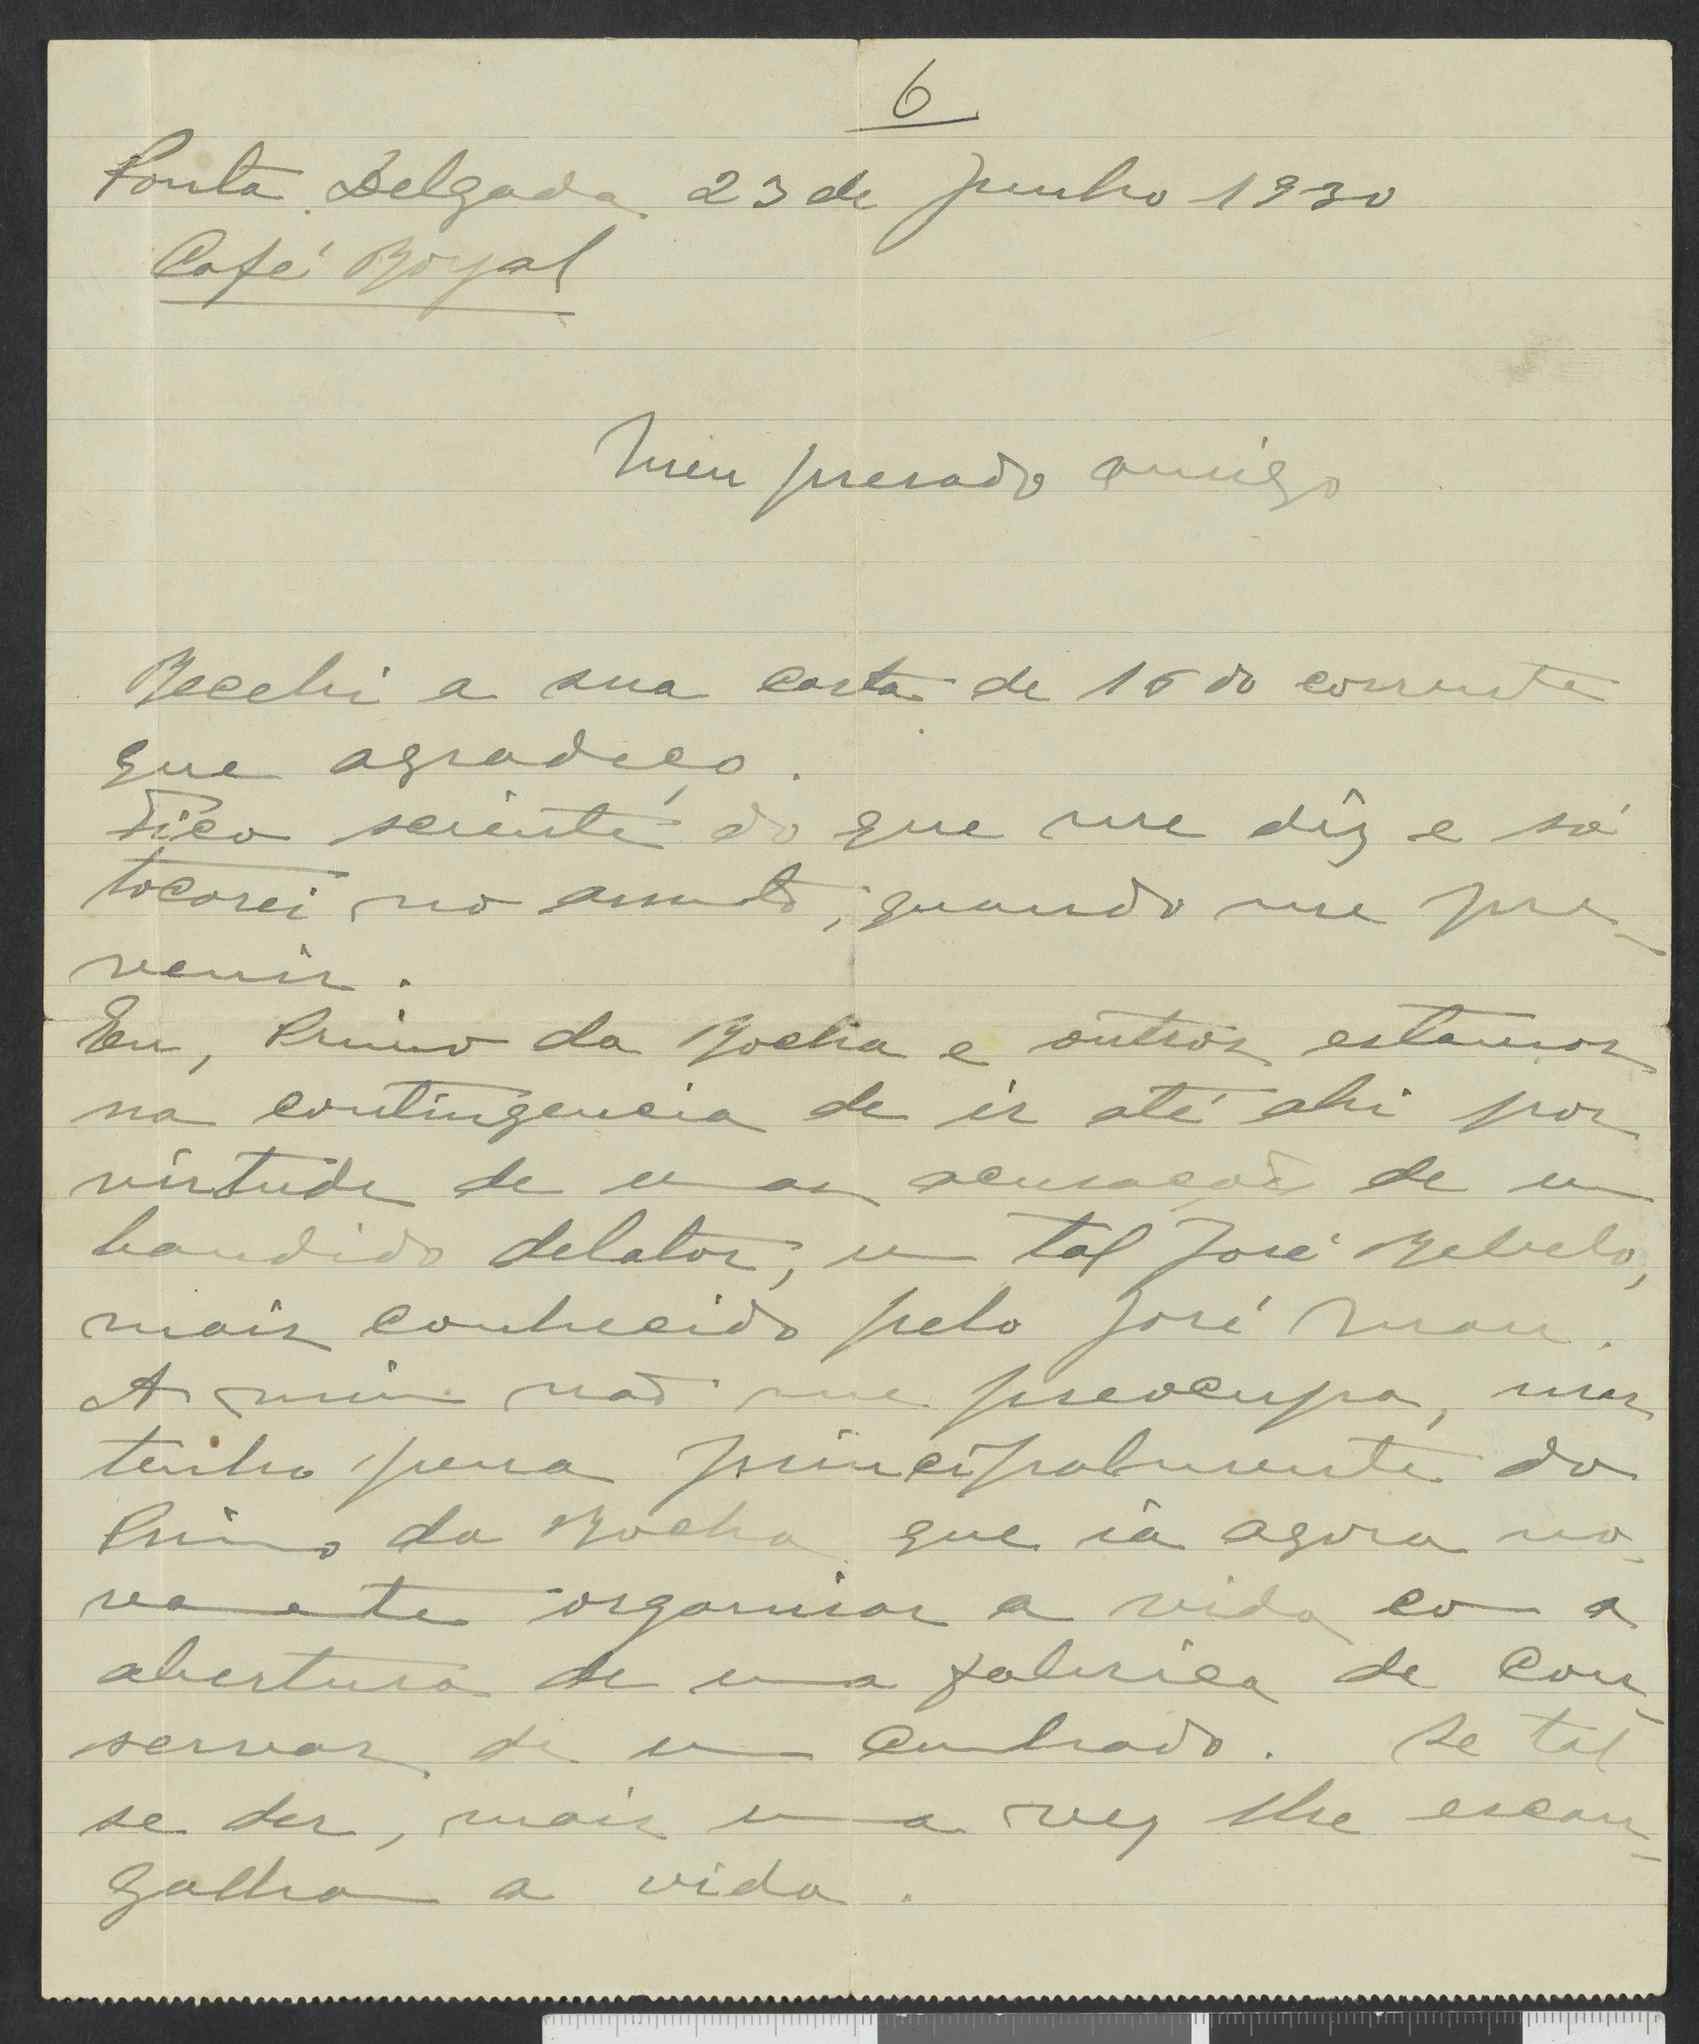 6
Ponta Delgada 23 de Junho 1930
Café Royal
Meu presado amigo
Recebi a sua carta de 16 do corrente
que agradeço.
Fico sciente do que me diz e só
tocarei no assunto, quando me pre-
venir.
Eu, Primo da Rocha e outros estamos
na contingencia de ir até ahi por
virtude de umas acusações de um
bandido delator, um tal José Rebelo,
mais conhecido pelo José Mau.
A mim não me preocupa, mas
tenho pena principalmente do
Primo da Rocha que ia agora no-
vamente organisar a vida com a
abertura de uma fabrica de con-
servas de um cunhado. Se tal
se der, mais uma vez lhe escan-
galham a vida.